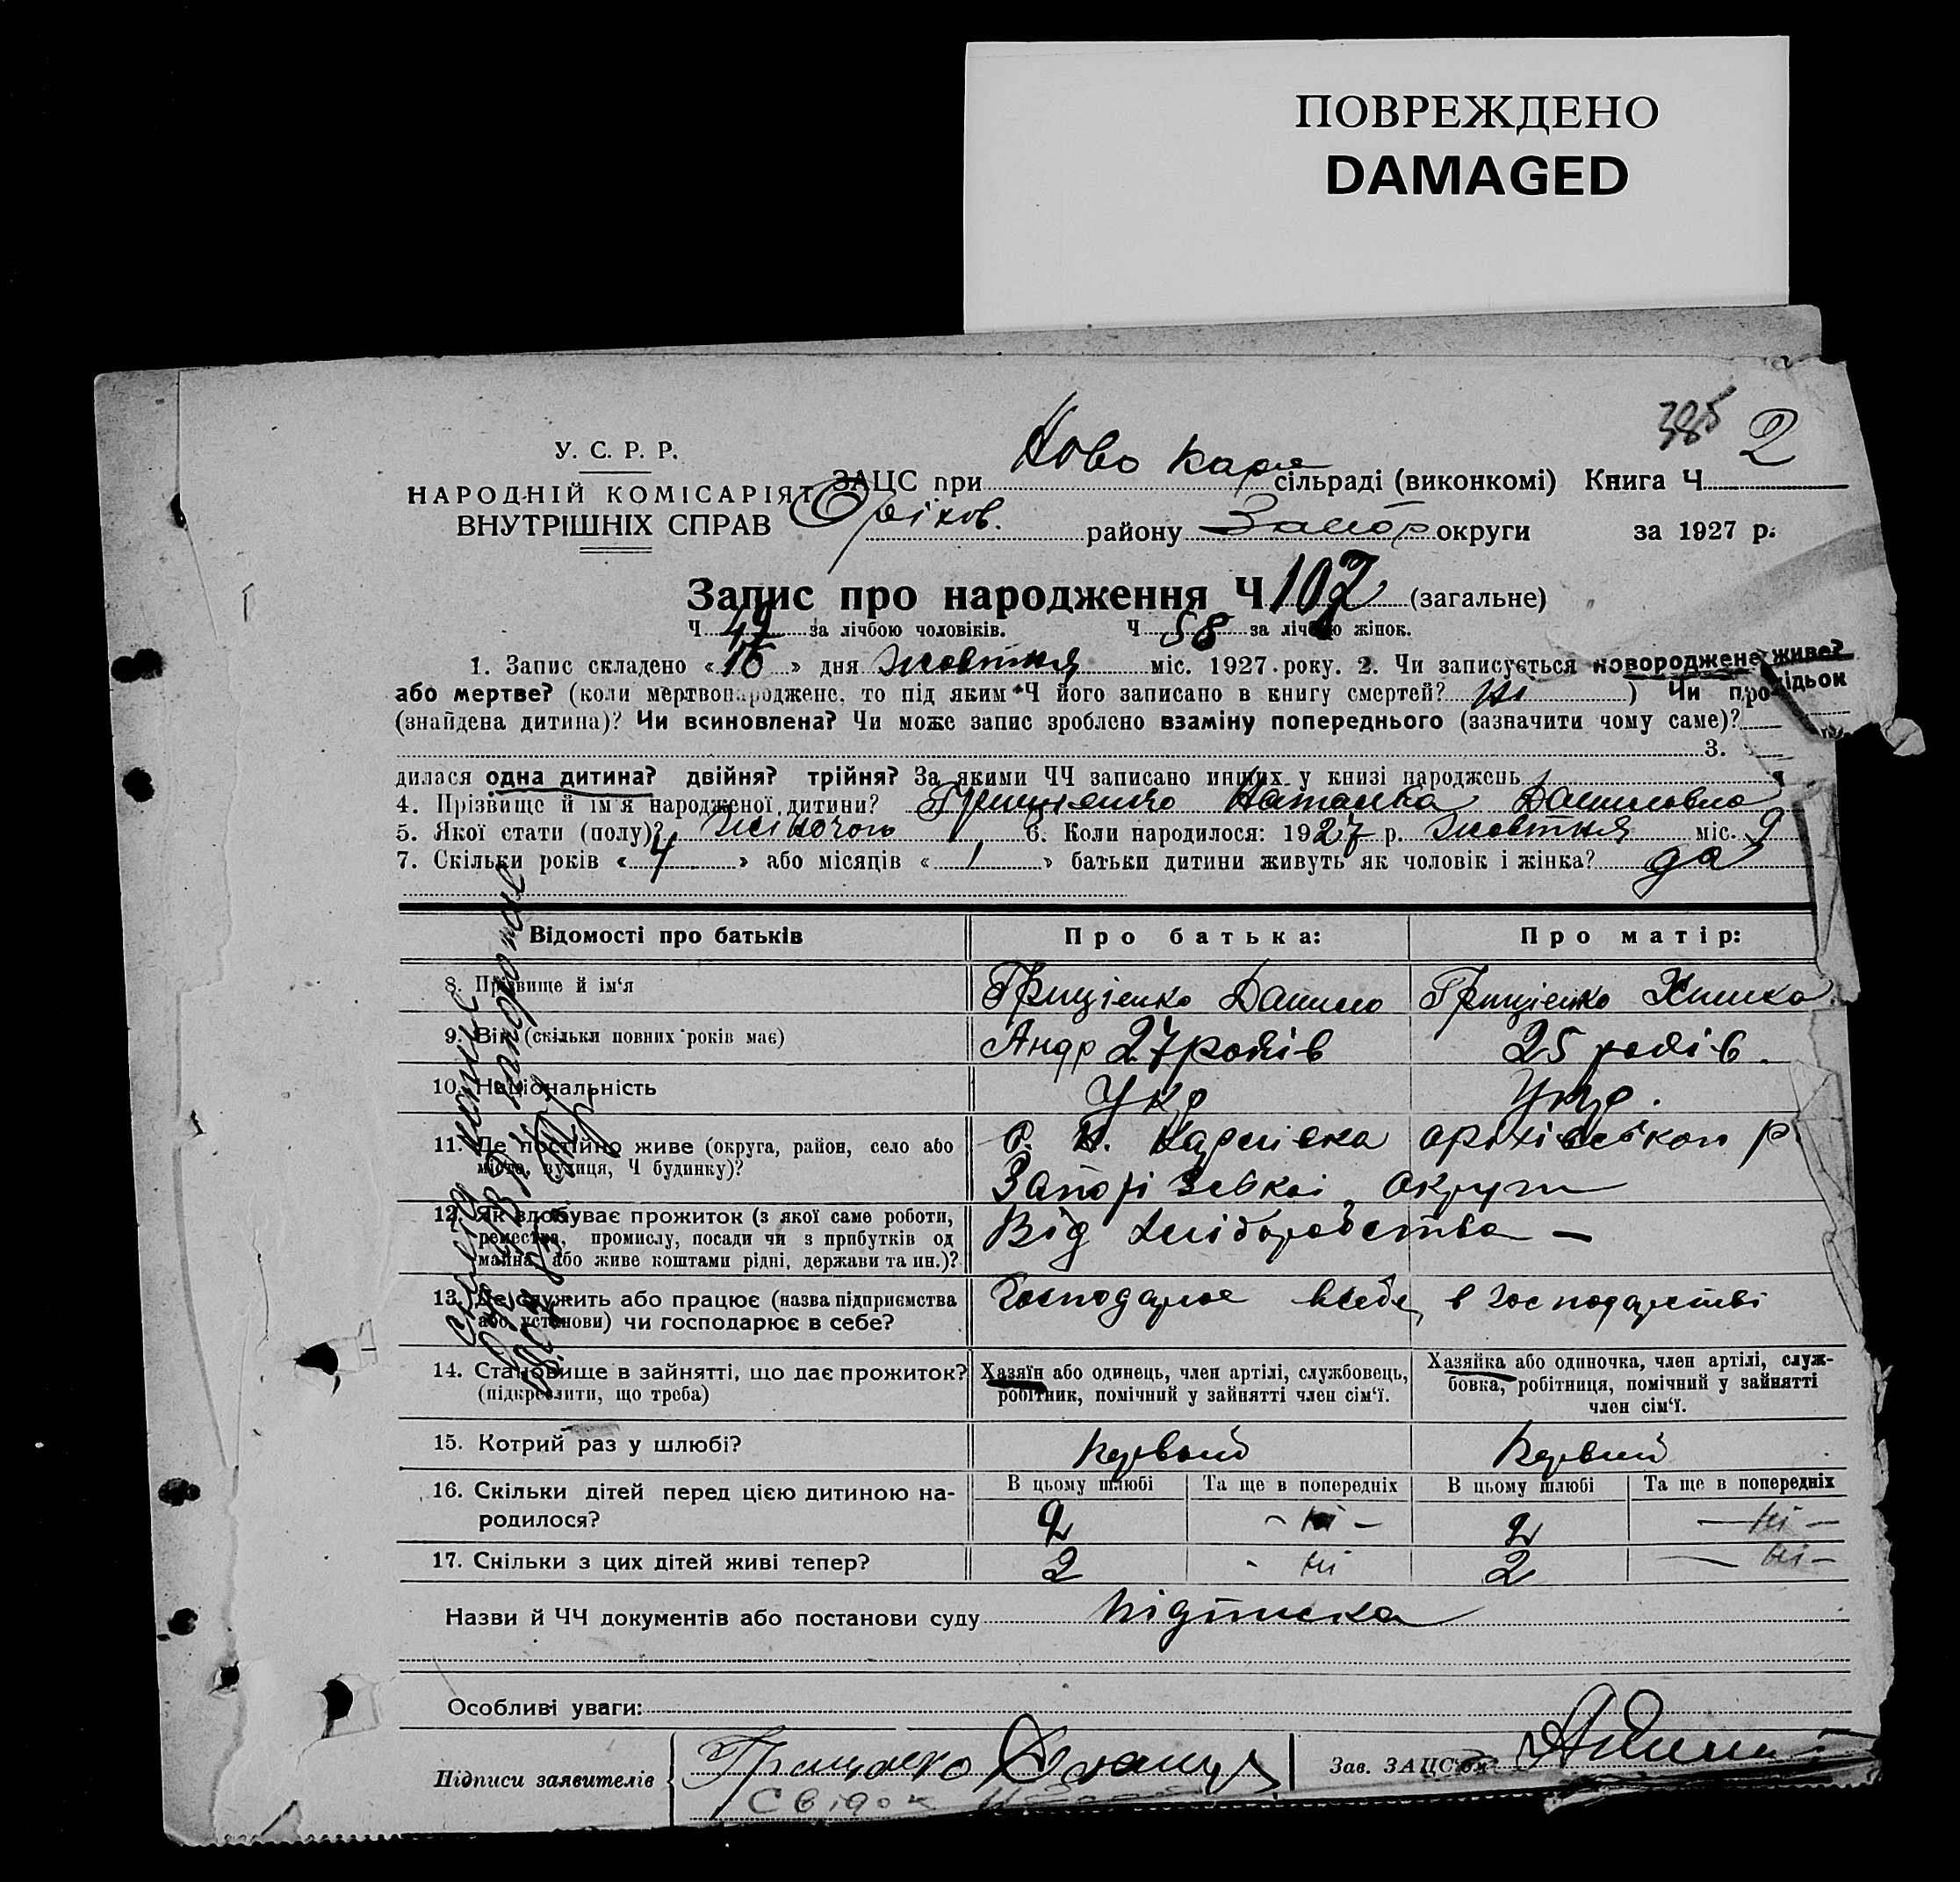 ПОВРЕЖДЕНО
DAMAGED
385 2
У. С. Р. Р.
НАРОДНІЙ КОМІСАРІЯТ
ВНУТРІШНІХ СПРАВ
ЗАЦС при Ново Кар сільраді (виконкомі) Книга Ч
Оріхов. району Запор округи за 1927 р.
Запис про народження Ч 107 (загальне)
Ч 49 за лічбою чоловіків. Ч 58 за лічбою жінок.
1. Запис складено « 16 » дня жовтня міс. 1927 року. 2. Чи записується новороджене живе?
або мертве? (коли мертвонароджене, то під яким Ч його записано в книгу смертей? ні ) Чи про ідьок
(знайдена дитина)? Чи всиновлена? Чи може запис зроблено взаміну попереднього (зазначити чому саме)?
3.
дилася одна дитина? двійня? трійня? За якими ЧЧ записано инших у книзі народжень
4. Прізвище й ім'я народженої дитини? Гриценко Наталка Даниловна
5. Якої стати (полу)? жіночого 6. Коли народилося: 1927 р. жовтня міс. 9
7. Скільки років « 4 » або місяців « / » батьки дитини живуть як чоловік і жінка? да
Відомості про батьків Про батька: Про матір:
8. Прізвище й ім'я Гриціенко Данило Гриціенко
9. Вік (скільки повних років має) Андр 27 років 25 років.
10. Національність Укр Укр.
11. Де постійно живе (округа, район, село або
місто, вулиця, Ч будинку)?
С. Н. Карлівка оріхівського р.
Запорізської округи
12. Як здобуває прожиток (з якої саме роботи,
ремества, промислу, посади чи з прибутків од
майна, або живе коштами рідні, держави та ин.)?
Від хліборобства —
13. Де служить або працює (назва підприємства
або установи) чи господарює в себе?
Господарює в себе в господарстві
14. Становище в зайнятті, що дає прожиток?
(підкреслити, що треба)
Хазяїн або одинець, член артілі, службовець,
робітник, помічний у зайнятті член сім'ї.
Хазяйка або одиночка, член артілі, служ-
бовка, робітниця, помічний у зайнятті
член сім'ї.
15. Котрий раз у шлюбі? Первый Первий
16. Скільки дітей перед цією дитиною на-
родилося?
В цьому шлюбі Та ще в попередніх В цьому шлюбі Та ще в попередніх
2 — ні — 2 — ні —
17. Скільки з цих дітей живі тепер? 2 - ні 2 — ні —
Назви й ЧЧ документів або постанови суду підписка
Особливі уваги:
Підписи заявителів Гриценко Зав. ЗАЦС'ом
Свідок